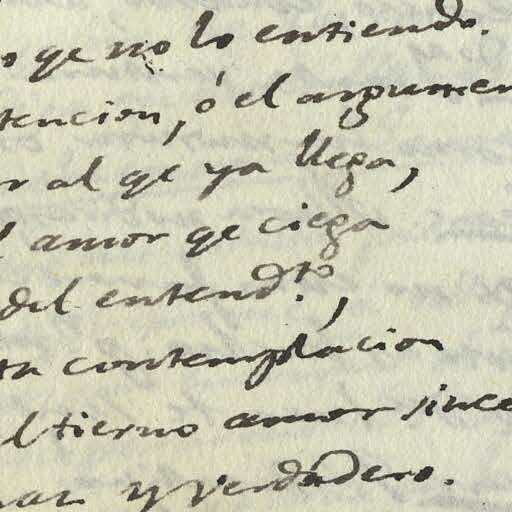 o qe no lo entiendo.
tencion, ó el argumen
r al qe ya llega,
l amor qe ciega
del entend.to,
ta contemplacion
l tierno amor, since
nan y verdadero.